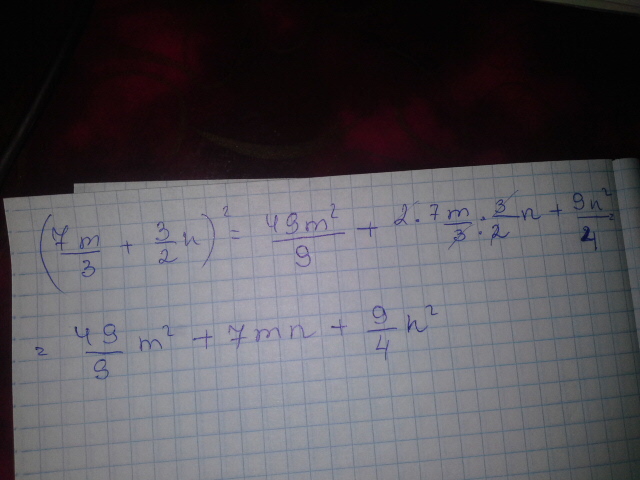 (7m/3 + 3/2 n)² = 49m²/9 + 2·7m/3·3/2 n + 9n²/4 =
= 49/9 m² + 7mn + 9/4 n²